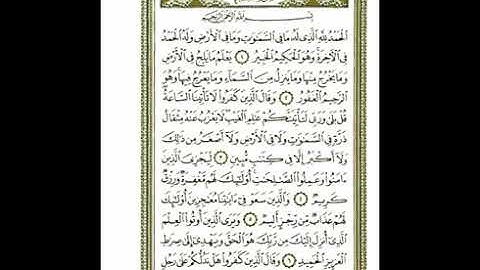 بِسْمِ ٱللَّهِ ٱلرَّحْمَٰنِ ٱلرَّحِيمِ
ٱلْحَمْدُ لِلَّهِ ٱلَّذِى لَهُۥ مَا فِى ٱلسَّمَٰوَٰتِ وَمَا فِى ٱلْأَرْضِ وَلَهُ ٱلْحَمْدُ
فِى ٱلْءَاخِرَةِ وَهُوَ ٱلْحَكِيمُ ٱلْخَبِيرُ ١ يَعْلَمُ مَا يَلِجُ فِى ٱلْأَرْضِ
وَمَا يَخْرُجُ مِنْهَا وَمَا يَنزِلُ مِنَ ٱلسَّمَآءِ وَمَا يَعْرُجُ فِيهَا وَهُوَ
ٱلرَّحِيمُ ٱلْغَفُورُ ٢ وَقَالَ ٱلَّذِينَ كَفَرُوا۟ لَا تَأْتِينَا ٱلسَّاعَةُ
قُلْ بَلَىٰ وَرَبِّى لَتَأْتِيَنَّكُمْ عَٰلِمِ ٱلْغَيْبِ لَا يَعْزُبُ عَنْهُ مِثْقَالُ
ذَرَّةٍ فِى ٱلسَّمَٰوَٰتِ وَلَا فِى ٱلْأَرْضِ وَلَآ أَصْغَرُ مِن ذَٰلِكَ
وَلَآ أَكْبَرُ إِلَّا فِى كِتَٰبٍ مُّبِينٍ ٣ لِّيَجْزِىَ ٱلَّذِينَ
ءَامَنُوا۟ وَعَمِلُوا۟ ٱلصَّٰلِحَٰتِ أُو۟لَٰٓئِكَ لَهُم مَّغْفِرَةٌ وَرِزْقٌ
كَرِيمٌ ٤ وَٱلَّذِينَ سَعَوْ فِىٓ ءَايَٰتِنَا مُعَٰجِزِينَ أُو۟لَٰٓئِكَ
لَهُمْ عَذَابٌ مِّن رِّجْزٍ أَلِيمٌ ٥ وَيَرَى ٱلَّذِينَ أُوتُوا۟ ٱلْعِلْمَ
ٱلَّذِىٓ أُنزِلَ إِلَيْكَ مِن رَّبِّكَ هُوَ ٱلْحَقَّ وَيَهْدِىٓ إِلَىٰ صِرَٰطِ
ٱلْعَزِيزِ ٱلْحَمِيدِ ٦ وَقَالَ ٱلَّذِينَ كَفَرُوا۟ هَلْ نَدُلُّكُمْ عَلَىٰ رَجُلٍ